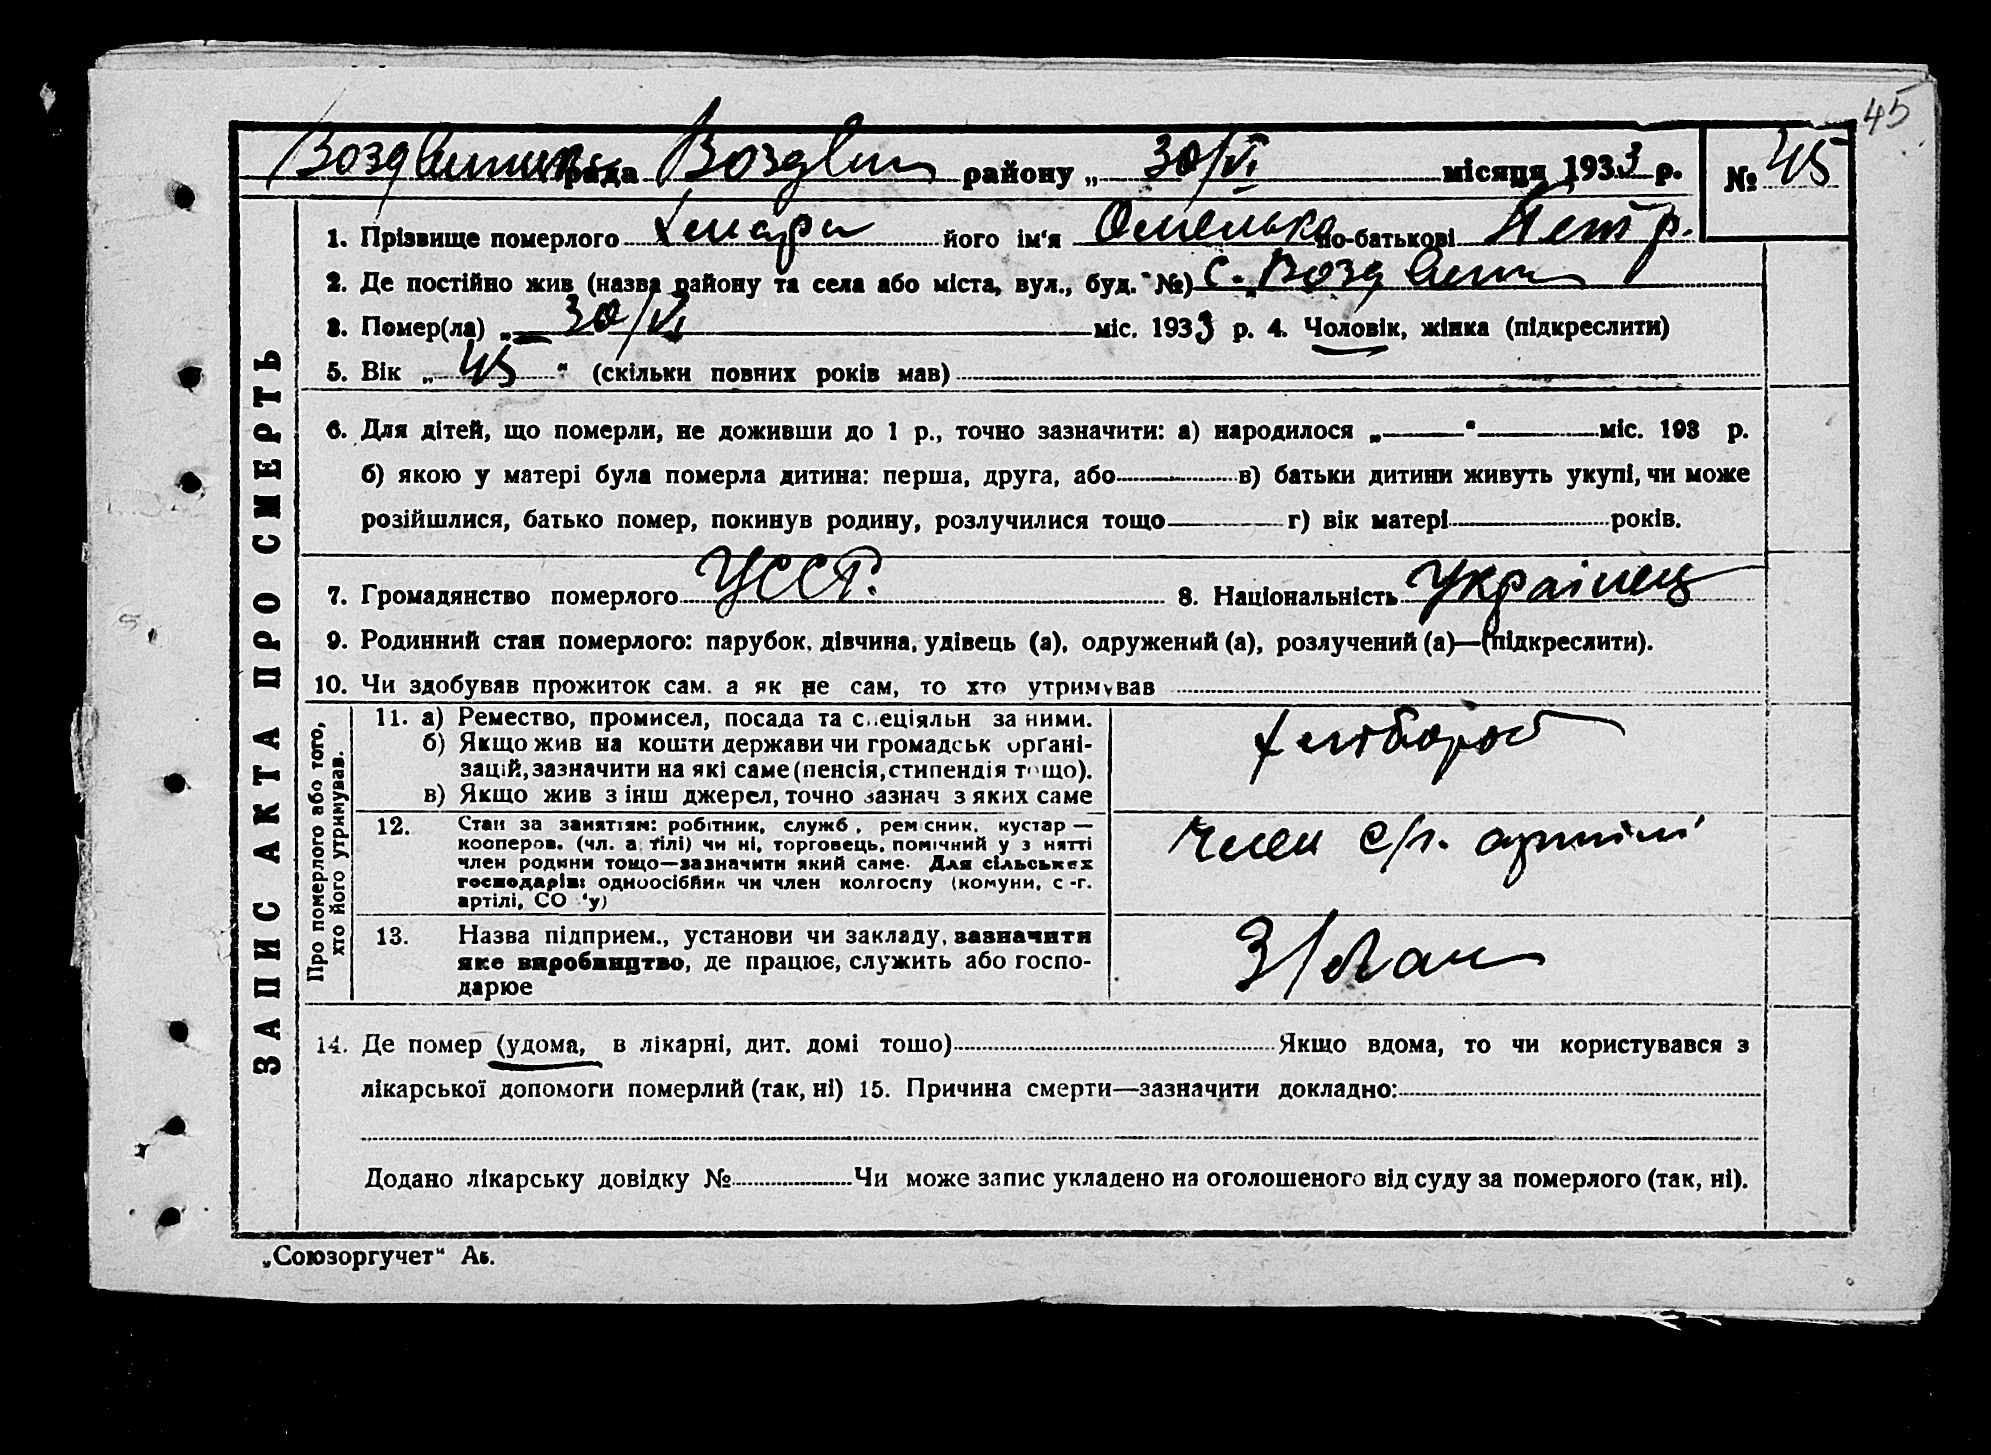 45
рада Воздвиж району „ 30/VI місяця 1933 р. № 45
ЗАПИС АКТА ПРО СМЕРТЬ
1. Прізвище померлого його ім'я Омелько по-батькові Петр.
2. Де постійно жив (назва району та села або міста, вул., буд. №) с. Воздвиж
3. Помер(ла) „ 30/VI міс. 1933 р. 4. Чоловік, жінка (підкреслити)
5. Вік „ 45 " (скільки повних років мав)
6. Для дітей, що померли, не доживши до 1 р., точно зазначити: а) народилося „ " міс. 193 р.
б) якою у матері була померла дитина: перша, друга, або в) батьки дитини живуть укупі, чи може
розійшлися, батько помер, покинув родину, розлучилися тощо г) вік матері років.
7. Громадянство померлого УССР. 8. Національність Українец
9. Родинний стан померлого: парубок, дівчина, удівець (а), одружений (а), розлучений (а)—(підкреслити).
10. Чи здобував прожиток сам, а як не сам, то хто утримував
Про померлого або того, хто його утримував.
11. а) Ремество, промисел, посада та спеціяльн за ними.
б) Якщо жив на кошти держави чи громадськ орґані-
зацій, зазначити на які саме (пенсія, стипендія тощо).
в) Якщо жив з інш джерел, точно зазнач з яких саме
хлібороб
12. Стан за заняттям: робітник, служб., ремісник, кустар —
кооперов. (чл. артілі) чи ні, торговець, помічний у занятті
член родини тощо—зазначити який саме. Для сільських
господарів: одноосібник чи член колгоспу (комуни, с.-г.
артілі, СО у)
член с/г. артілі
13. Назва підприєм., установи чи закладу, зазначити
яке виробництво, де працює, служить або госпо-
дарює
14. Де помер (удома, в лікарні, дит. домі тощо) Якщо вдома, то чи користувався з
лікарської допомоги померлий (так, ні) 15. Причина смерти—зазначити докладно:
Додано лікарську довідку № Чи може запис укладено на оголошеного від суду за померлого (так, ні).
„Союзоргучет"